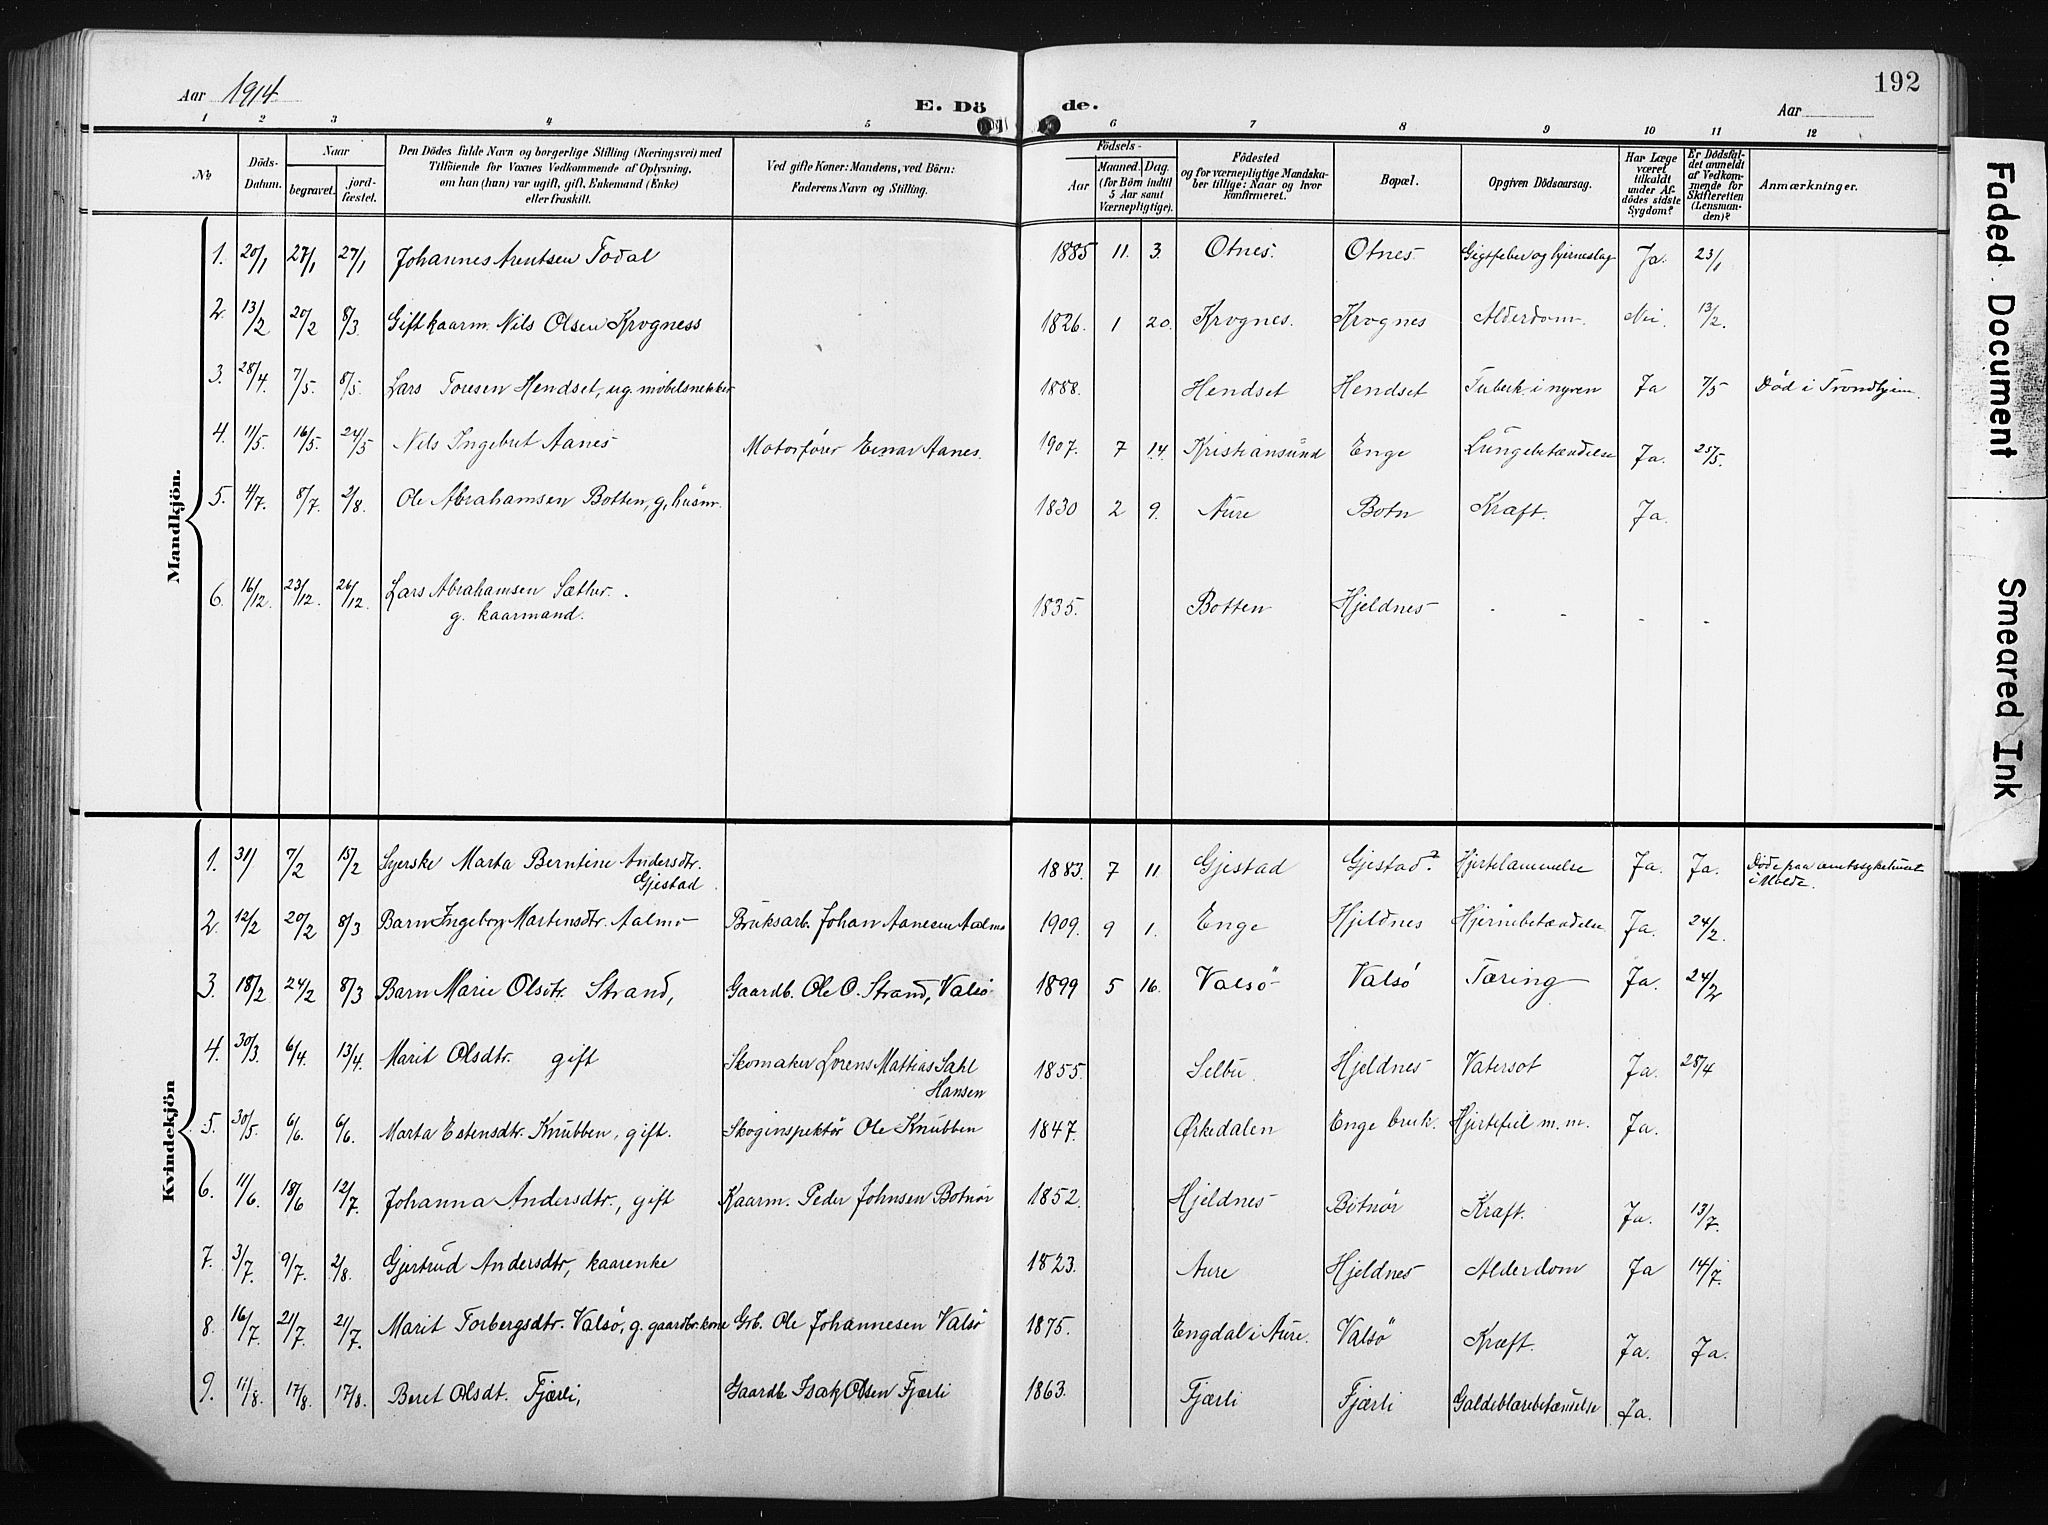 192
Aar 1914
E. Döde.
Aar
1 2 3 4 5 6 7 8 9 10 11 12
No
Döds-Datum.
Naar
begravet.
jord-fæstet.
Den Dödes fulde Navn og borgerlige Stilling (Næringsvei) med
Tilföiende for Voxnes Vedkommende af Oplysning,
om hun (han) var ugift, gift, Enkemand (Enke)
eller fraskilt.
Ved gifte Koner: Mandens, ved Börn:
Faderens Navn og Stilling.
Födsels-
Aar
Maaned. Dag.
(for Börn indtil
5 Aar samt
Værnepligtige).
Födested
og for værnepligtige Mandska-
ber tillige: Naar og hvor
konfirmeret.
Bopæl.
Opgiven Dödsaarsag.
Har Læge
været
tilkaldt
under Af-
dödes sidste
Sygdom?
Er Dödsfal-
det anmeldt
af Vedkom-
mende for
Skifteretten
(Lensman-
den)?
Anmærkninger.
Mandkjön.
1. 20/1 27/1 27/1 Johannes Arentsen Todal 1885 11. 3. Otnes. Otnes. Gigtfeber og hjerneslag Ja. 23/1
2. 13/2 20/2 8/3. Gift kaarm. Nils Olsen Krogness 1826. 1 20. Krognes. Krognes Alderdom. Nei. 13/2.
3. 28/4. 7/5. 8/5. Lars Toresen Hendset, ug. møbelsnekker 1888. Hendset Hendset Tuberk. i nyren Ja 7/5 Død i Trondhjem.
4. 11/5. 16/5. 24/5 Nils Ingebret Aanes Motorfører Einar Aanes. 1907. 7 14. Kristiansund Enge Lungebetændelse Ja. 25/5.
5. 4/7. 8/7. 2/8 Ole Abrahamsen Botten, g, husm. 1830 2 9. Aure Botn Kræft. Ja.
6. 16/12. 23/12. 26/12. Lars Abrahamsen Sæther.
g. kaarmand. 1835. Botten Hjeldnes - - - -
Kvindekjön
1. 31/ 7/2 15/2 Syerske Marta Berntine Andersdtr.
Gjestad 1883. 7 11 Gjestad Gjestad? Hjertelammelse Ja. Ja. Døde paa amtssykehuset
i Molde.
2. 12/2 20/2 8/3 Barn Ingeborg Martensdtr. Aalmo Bruksarb. Johan Aanesen Aalmo 1909. 9 1. Enge Hjeldnes Hjernebetændelse Ja. 24/2.
3. 18/2 24/2 8/3 Barn Marie Olsdtr. Strand, Gaardb. Ole O. Strand, Valsö 1899 5 16. Valsö Valsø Tæring Ja. 24/2
4. 30/3. 6/4. 13/4. Marit Olsdtr. gift Skomaker Lorens Mattias Sahl
Hansen 1855. Selbu. Hjeldnes Vatersot Ja. 28/4
5. 30/5. 6/6. 6/6. Marta Estensdtr. Knubben, gift. Skoginspektør Ole Knubben 1847. Ørkedalen Enge bruk. Hjertefeil m. m. Ja.
6. 11/6. 18/6 12/7. Johanna Andersdtr., gift Kaarm. Peder Johnsen Botnør 1852. Hjeldnes Botnør Kræft. Ja. 13/7.
7. 3/7. 9/7. 2/8. Gjertrud Andersdtr, kaarenke 1823. Aure Hjeldnes Alderdom Ja 14/7.
8. 16/7 21/7. 21/7. Marit Torbergsdtr. Valsø, g. gaardbr.kone Grb. Ole Johannesen Valsö 1875. Engdal i Aure. Valsö Kræft. Ja. Ja.
9. 11/8. 17/8. 17/8. Beret Olsdt. Fjærli, Gaardb. Isak Olsen Fjærli 1863. Fjærli Fjærli Galdeblærebetændelse Ja.
Faded Document
Smeared Ink